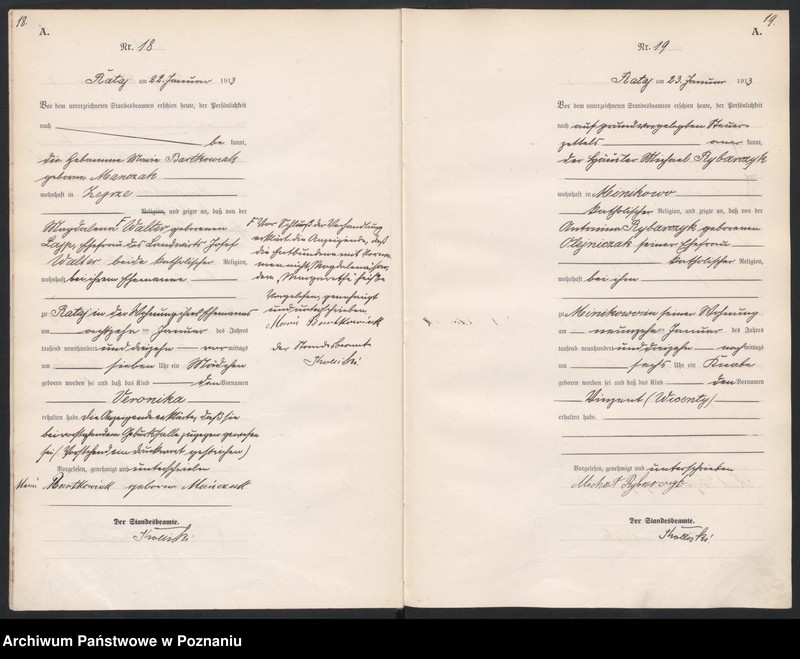 18.
A.
Nr. 18
Rataj am 22. Januar 1913
Vor dem unterzeichneten Standesbeamten erschien heute, der Persönlichkeit
nach be kannt,
die Hebamme Marie Bartkowiak
geborene Manczak
wohnhaft in Zegrze
Religion, und zeigte an, daß von der
Magdalena F Walter geborenen
Ehefrau des Landwirts Josef
Walter beide katholischer Religion,
wohnhaft bei ihrem Ehemanne
zu Rataj in der Wohnung ihres Ehemannes
am achtzehn ten Januar des Jahres
tausend neunhundert und dreizehn vor mittags
um sieben Uhr ein Mädchen
geboren worden sei und daß das Kind den Vornamen
Veronika
erhalten habe. Die Anzeigende erklärte, daß sie
bei vorstehendem Geburtsfalle zugegen gewesen
sei. (Vorstehend ein Druckwort gestrichen)
Vorgelesen, genehmigt und unterschrieben
Marie Bartkowiak geborene Mańczak
Der Standesbeamte.
F Vor Schluß der Verhandlung
erklärt die Anzeigende, daß
die Entbundene mit Vorna-
men nicht "Magdalena", son-
dern "Margarethe" heiße
Vorgelesen, genehmigt
und unterschrieben
Marie Bartkowiak
Der Standesbeamte
19.
A.
Nr. 19
Rataj am 23. Januar 1913
Vor dem unterzeichneten Standesbeamten erschien heute, der Persönlichkeit
nach auf grund vorgelegten Steuer-
zettels aner kannt,
der Häusler Michael Rybarczyk
wohnhaft in Minikowo
katholischer Religion, und zeigte an, daß von der
Antonina Rybarczyk geborenen
Olejniczak seiner Ehefrau
katholischer Religion,
wohnhaft bei ihm
zu Minikowo in seiner Wohnung
am neunzehn ten Januar des Jahres
tausend neunhundert und dreizehn nach mittags
um sechs Uhr ein Knabe
geboren worden sei und daß das Kind den Vornamen
Vinzent (Wicenty)
erhalten habe.
Vorgelesen, genehmigt und unterschrieben
Michał Rybarczyk
Der Standesbeamte.
Archiwum Państwowe w Poznaniu